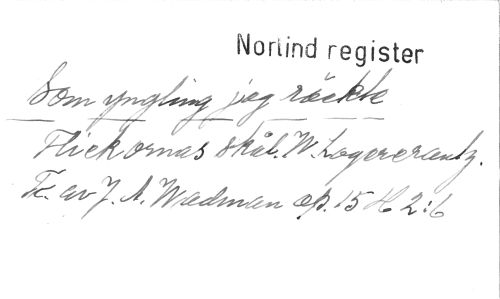 Norlind register
Som yngling jag räckte
Flickornas skål. W. Lagercrantz.
T. av J. A. Wadman op. 15 H 2:6